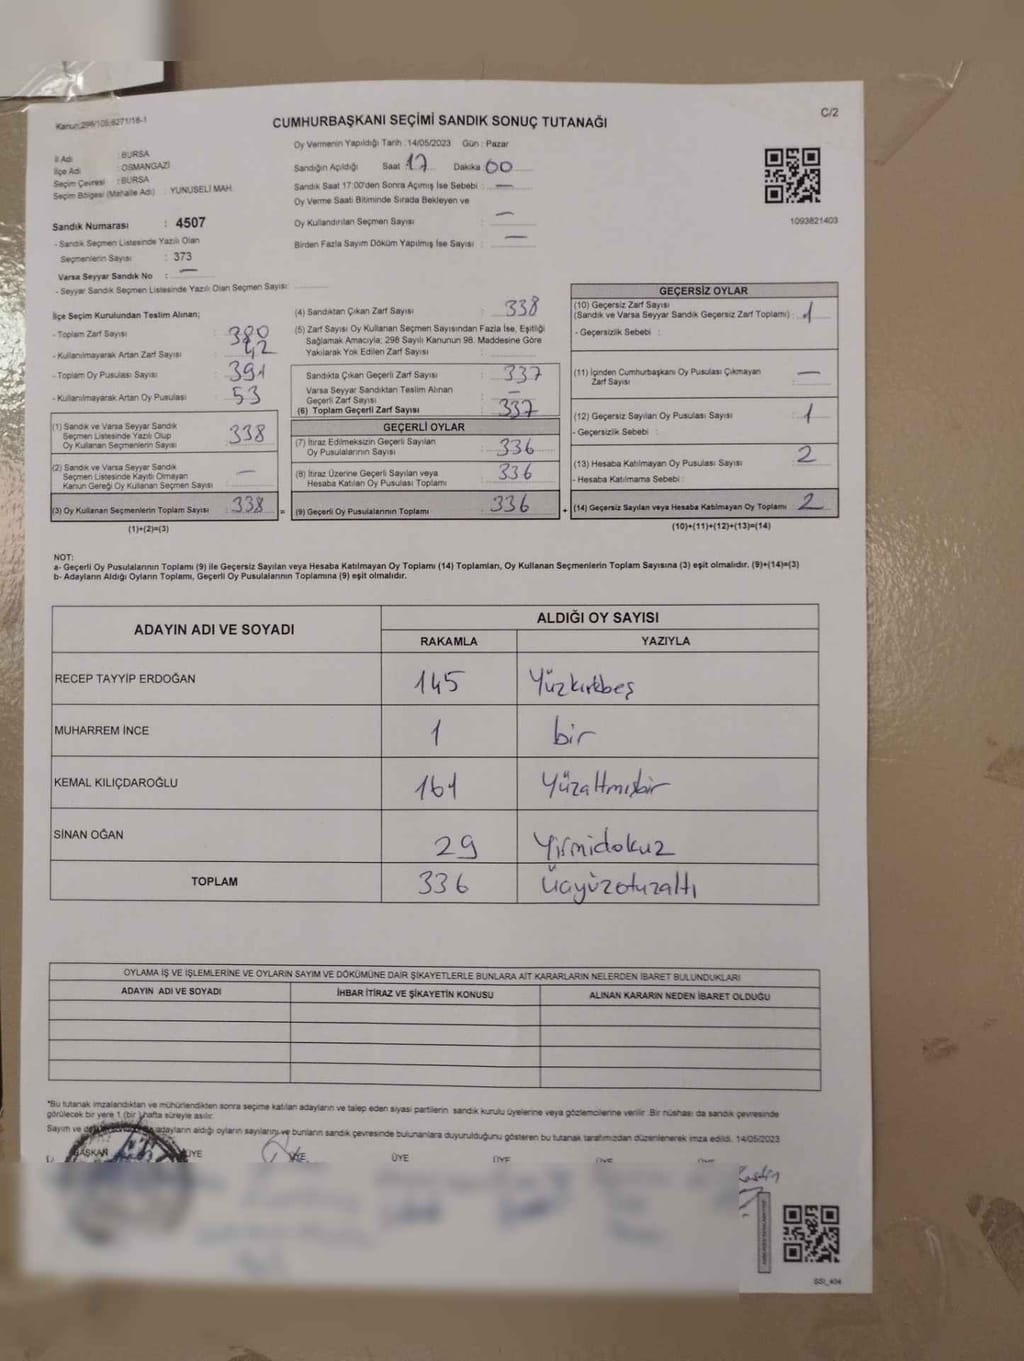 Kanun:298/105;6271/18-1
C/2
CUMHURBAŞKANI SEÇİMİ SANDIK SONUÇ TUTANAĞI
Oy Vermenin Yapıldığı Tarih :14/05/2023 Gün : Pazar
İl Adı : BURSA
İlçe Adı : OSMANGAZİ
Seçim Çevresi : BURSA
Seçim Bölgesi (Mahalle Adı) : YUNUSELİ MAH.
Sandığın Açıldığı Saat 17 Dakika 00
Sandık Saat 17:00'den Sonra Açımış İse Sebebi : —
Oy Verme Saati Bitiminde Sırada Bekleyen ve
Oy Kullandırılan Seçmen Sayısı : —
Birden Fazla Sayım Döküm Yapılmış İse Sayısı : —
1093821403
Sandık Numarası : 4507
- Sandık Seçmen Listesinde Yazılı Olan
Seçmenlerin Sayısı : 373
Varsa Seyyar Sandık No : —
- Seyyar Sandık Seçmen Listesinde Yazılı Olan Seçmen Sayısı:
İlçe Seçim Kurulundan Teslim Alınan;
- Toplam Zarf Sayısı : 380
- Kullanılmayarak Artan Zarf Sayısı : 42
- Toplam Oy Pusulası Sayısı : 391
- Kullanılmayarak Artan Oy Pusulası : 53
(1) Sandık ve Varsa Seyyar Sandık
Seçmen Listesinde Yazılı Olup
Oy Kullanan Seçmenlerin Sayısı : 338
(2) Sandık ve Varsa Seyyar Sandık
Seçmen Listesinde Kayıtlı Olmayan
Kanun Gereği Oy Kullanan Seçmen Sayısı : —
(3) Oy Kullanan Seçmenlerin Toplam Sayısı : 338 =
(1)+(2)=(3)
(4) Sandıktan Çıkan Zarf Sayısı : 338
(5) Zarf Sayısı Oy Kullanan Seçmen Sayısından Fazla İse, Eşitliği
Sağlamak Amacıyla; 298 Sayılı Kanunun 98. Maddesine Göre
Yakılarak Yok Edilen Zarf Sayısı :
Sandıkta Çıkan Geçerli Zarf Sayısı : 337
Varsa Seyyar Sandıktan Teslim Alınan
Geçerli Zarf Sayısı : —
(6) Toplam Geçerli Zarf Sayısı : 337
GEÇERLİ OYLAR
(7) İtiraz Edilmeksizin Geçerli Sayılan
Oy Pusulalarının Sayısı : 336
(8) İtiraz Üzerine Geçerli Sayılan veya
Hesaba Katılan Oy Pusulası Toplamı : 336
(9) Geçerli Oy Pusulalarının Toplamı : 336 +
GEÇERSİZ OYLAR
(10) Geçersiz Zarf Sayısı
(Sandık ve Varsa Seyyar Sandık Geçersiz Zarf Toplamı) : 1
- Geçersizlik Sebebi :
(11) İçinden Cumhurbaşkanı Oy Pusulası Çıkmayan
Zarf Sayısı : —
(12) Geçersiz Sayılan Oy Pusulası Sayısı : 1
- Geçersizlik Sebebi :
(13) Hesaba Katılmayan Oy Pusulası Sayısı : 2
- Hesaba Katılmama Sebebi :
(14) Geçersiz Sayılan veya Hesaba Katılmayan Oy Toplamı : 2
(10)+(11)+(12)+(13)=(14)
NOT:
a- Geçerli Oy Pusulalarının Toplamı (9) ile Geçersiz Sayılan veya Hesaba Katılmayan Oy Toplamı (14) Toplamları, Oy Kullanan Seçmenlerin Toplam Sayısına (3) eşit olmalıdır. (9)+(14)=(3)
b- Adayların Aldığı Oyların Toplamı, Geçerli Oy Pusulalarının Toplamına (9) eşit olmalıdır.
ADAYIN ADI VE SOYADI
ALDIĞI OY SAYISI
RAKAMLA YAZIYLA
RECEP TAYYİP ERDOĞAN 145 Yüzkırkbeş
MUHARREM İNCE 1 bir
KEMAL KILIÇDAROĞLU 161 Yüzaltmışbir
SİNAN OĞAN 29 Yirmidokuz
TOPLAM 336 Üçyüzotuzaltı
OYLAMA İŞ VE İŞLEMLERİNE VE OYLARIN SAYIM VE DÖKÜMÜNE DAİR ŞİKAYETLERLE BUNLARA AİT KARARLARIN NELERDEN İBARET BULUNDUKLARI
ADAYIN ADI VE SOYADI İHBAR İTİRAZ VE ŞİKAYETİN KONUSU ALINAN KARARIN NEDEN İBARET OLDUĞU
*Bu tutanak imzalandıktan ve mühürlendikten sonra seçime katılan adayların ve talep eden siyasi partilerin sandık kurulu üyelerine veya gözlemcilerine verilir. Bir nüshası da sandık çevresinde
görülecek bir yere 1 (bir) hafta süreyle asılır.
Sayım ve adayların aldığı oyların sayılarını ve bunların sandık çevresinde bulunanlara duyurulduğunu gösteren bu tutanak tarafımızdan düzenlenerek imza edildi. 14/05/2023
BAŞKAN ÜYE ÜYE ÜYE ÜYE ÜYE
SSI_404